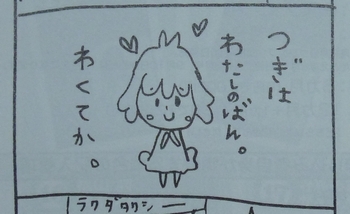 つぎは
わたしのばん。
わくてか。
ラクダタクシー